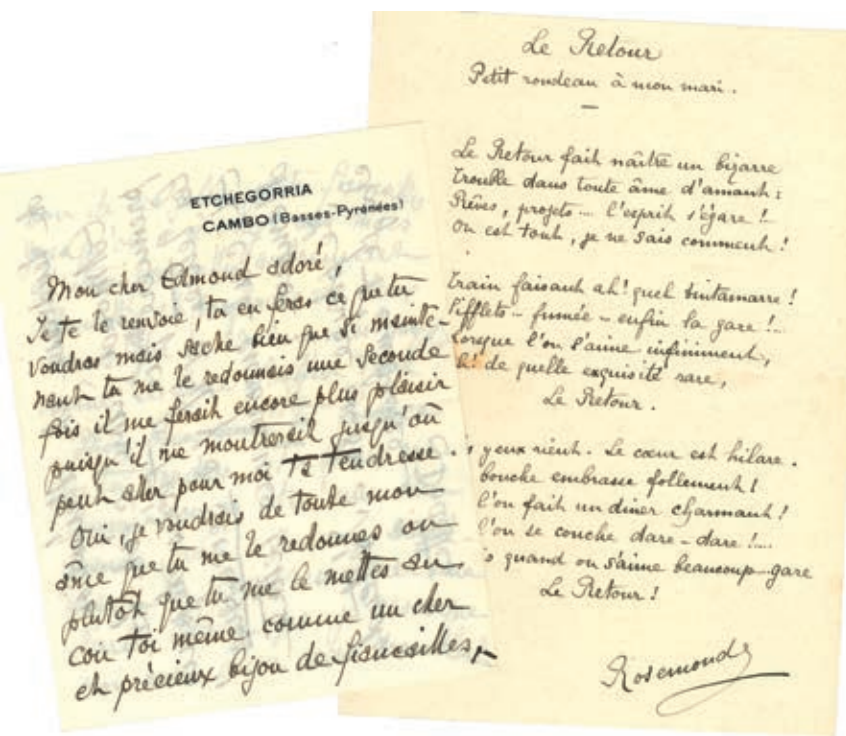 ETCHEGORRIA
CAMBO (Basses-Pyrénées)
Mon cher Edmond adoré,
Je te le renvoie, tu en feras ce que tu
voudras mais sache bien que si mainte-
nant tu me le redonnais une seconde
fois il me ferait encore plus plaisir
puisqu'il me montrerait jusqu'où
peut aller pour moi ta tendresse.
Oui, je voudrais de toute mon
âme que tu me le redonnes ou
plutôt que tu me le mettes au
cou toi même comme un cher
et précieux bijou de fiançailles,
Le Retour
Petit rondeau à mon mari.
Le Retour fait naître un bizarre
Trouble dans toute âme d'amant :
Rêves, projets... l'esprit s'égare !..
On est tout, je ne sais comment !
Train faisant ah! quel tintamarre !
Sifflets - fumée - enfin la gare !..
Lorsque l'on s'aime infiniment,
h! de quelle exquisité rare,
Le Retour.
s yeux rient. Le cœur est hilare.
bouche embrasse follement !
l'on fait un dîner charmant !
l'on se couche dare-dare !...
is quand on s'aime beaucoup gare
Le Retour !
Rosemonde